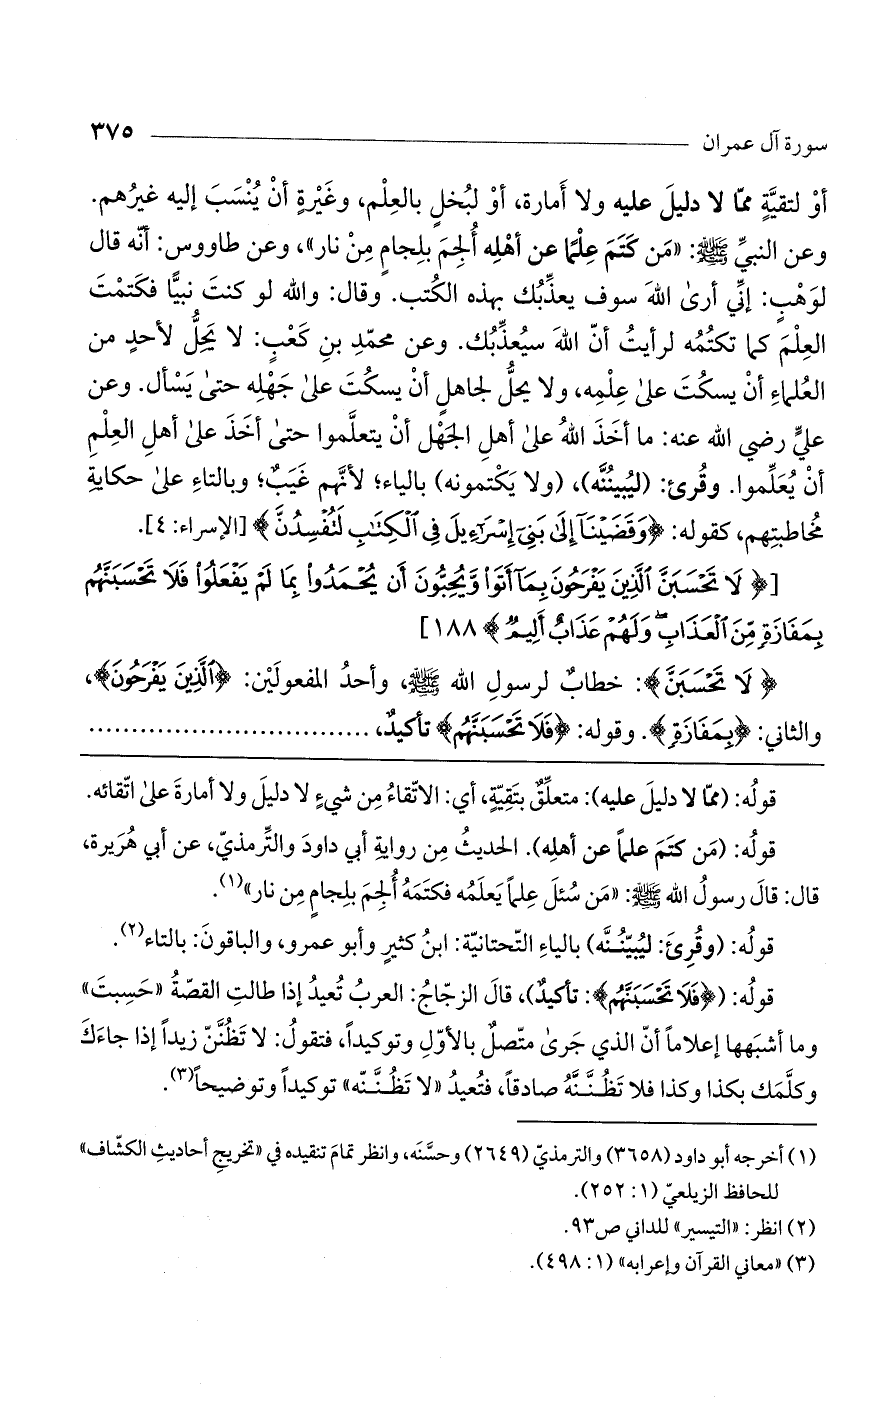 سورة آل عمران ٣٧٥
أوْ لتقيَّةٍ ممّا لا دليلَ عليه ولا أَمارة، أوْ لبُخلٍ بالعِلْم، وغَيْرةٍ أنْ يُنْسَبَ إليه غيرُهم.
وعن النبيِّ ﷺ: «مَن كَتَمَ عِلْمًا عن أهْلِه أُلجِمَ بلِجامٍ مِنْ نار»، وعن طاووس: أنّه قال
لوَهْبٍ: إنِّي أرىٰ اللهَ سوف يعذِّبُك بهذه الكُتب. وقال: والله لو كنتَ نبيًّا فكَتمْتَ
العِلْمَ كما تكتُمُه لرأيتُ أنّ اللهَ سيُعذِّبُك. وعن محمّدِ بنِ كَعْبٍ: لا يَحِلُّ لأحدٍ من
العُلماءِ أنْ يسكُتَ علىٰ عِلْمِه، ولا يحلُّ لجاهلٍ أنْ يسكُتَ علىٰ جَهْلِه حتىٰ يَسْأل. وعن
عليٍّ رضي الله عنه: ما أخَذَ اللهُ علىٰ أهلِ الجَهْل أنْ يتعلَّموا حتىٰ أخَذَ علىٰ أهلِ العِلْمِ
أنْ يُعَلِّموا. وقُرئ: (ليُبيِنُنَّه)، (ولا يَكْتمونه) بالياء؛ لأنَّهم غَيَبٌ؛ وبالتاءِ علىٰ حكايةِ
مُخاطبتِهم، كقوله: ﴿وَقَضَيْنَآ إِلَىٰ بَنِىٓ إِسْرَٰٓءِيلَ فِى ٱلْكِتَٰبِ لَتُفْسِدُنَّ﴾ [الإسراء: ٤].
[﴿لَا تَحْسَبَنَّ ٱلَّذِينَ يَفْرَحُونَ بِمَآ أَتَوا۟ وَّيُحِبُّونَ أَن يُحْمَدُوا۟ بِمَا لَمْ يَفْعَلُوا۟ فَلَا تَحْسَبَنَّهُم
بِمَفَازَةٍ مِّنَ ٱلْعَذَابِ ۖ وَلَهُمْ عَذَابٌ أَلِيمٌ﴾ ١٨٨]
﴿لَا تَحْسَبَنَّ﴾: خطابٌ لرسولِ الله ﷺ، وأحدُ المفعولَيْن: ﴿ٱلَّذِينَ يَفْرَحُونَ﴾،
والثاني: ﴿بِمَفَازَةٍ﴾. وقوله: ﴿فَلَا تَحْسَبَنَّهُم﴾ تأكيدٌ، ................................
قولُه: (ممّا لا دليلَ عليه): متعلِّقٌ بتَقِيّةٍ، أي: الاتّقاءُ مِن شيءٍ لا دليلَ ولا أمارةَ علىٰ اتّقائه.
قولُه: (مَن كتَمَ علماً عن أهلِه). الحديثُ مِن روايةِ أبي داودَ والتِّرمذيّ، عن أبي هُرَيرة،
قال: قالَ رسولُ الله ﷺ: «مَن سُئلَ عِلماً يَعلَمُه فكتَمَهُ أُلجِمَ بلِجامٍ مِن نار»(١).
قولُه: (وقُرِئَ: ليُبيِّنُنَّه) بالياءِ التّحتانيّة: ابنُ كثيرٍ وأبو عمرو، والباقونَ: بالتاء(٢).
قولُه: (﴿فَلَا تَحْسَبَنَّهُم﴾: تأكيدٌ)، قالَ الزجّاجُ: العربُ تُعيدُ إذا طالتِ القصّةُ «حَسِبتَ»
وما أشبَهها إعلاماً أنّ الذي جَرىٰ متّصلٌ بالأوّلِ وتوكيداً، فتقولُ: لا تَظُنَّنّ زيداً إذا جاءَكَ
وكلَّمَك بكذا وكذا فلا تَظُنَّنَّهُ صادقاً، فتُعيدُ «لا تَظُنَّنّه» توكيداً وتوضيحاً(٣).
(١) أخرجه أبو داود (٣٦٥٨) والترمذيّ (٢٦٤٩) وحسَّنَه، وانظر تمامَ تنقيده في «تخريجِ أحاديثِ الكشّاف»
للحافظ الزيلعيّ (١: ٢٥٢).
(٢) انظر: «التيسير» للداني ص٩٣.
(٣) «معاني القرآن وإعرابه» (١: ٤٩٨).